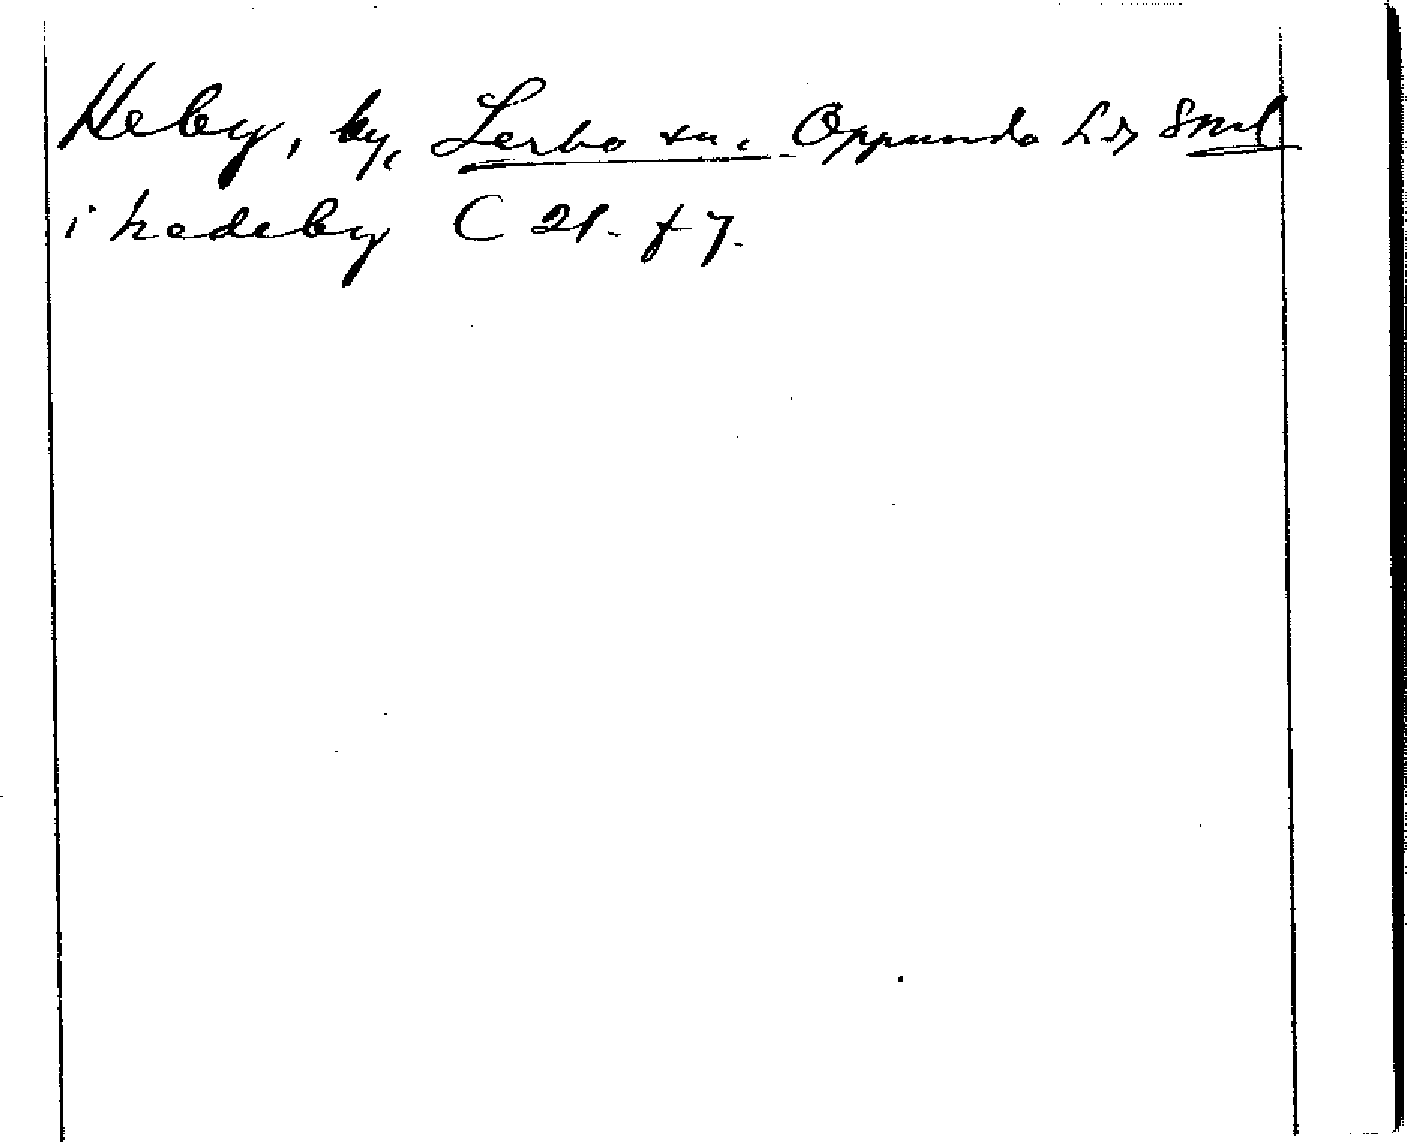 Heby, by, Lerbo sn. Oppunda hd, Sml
i hadeby C 21. f 7.